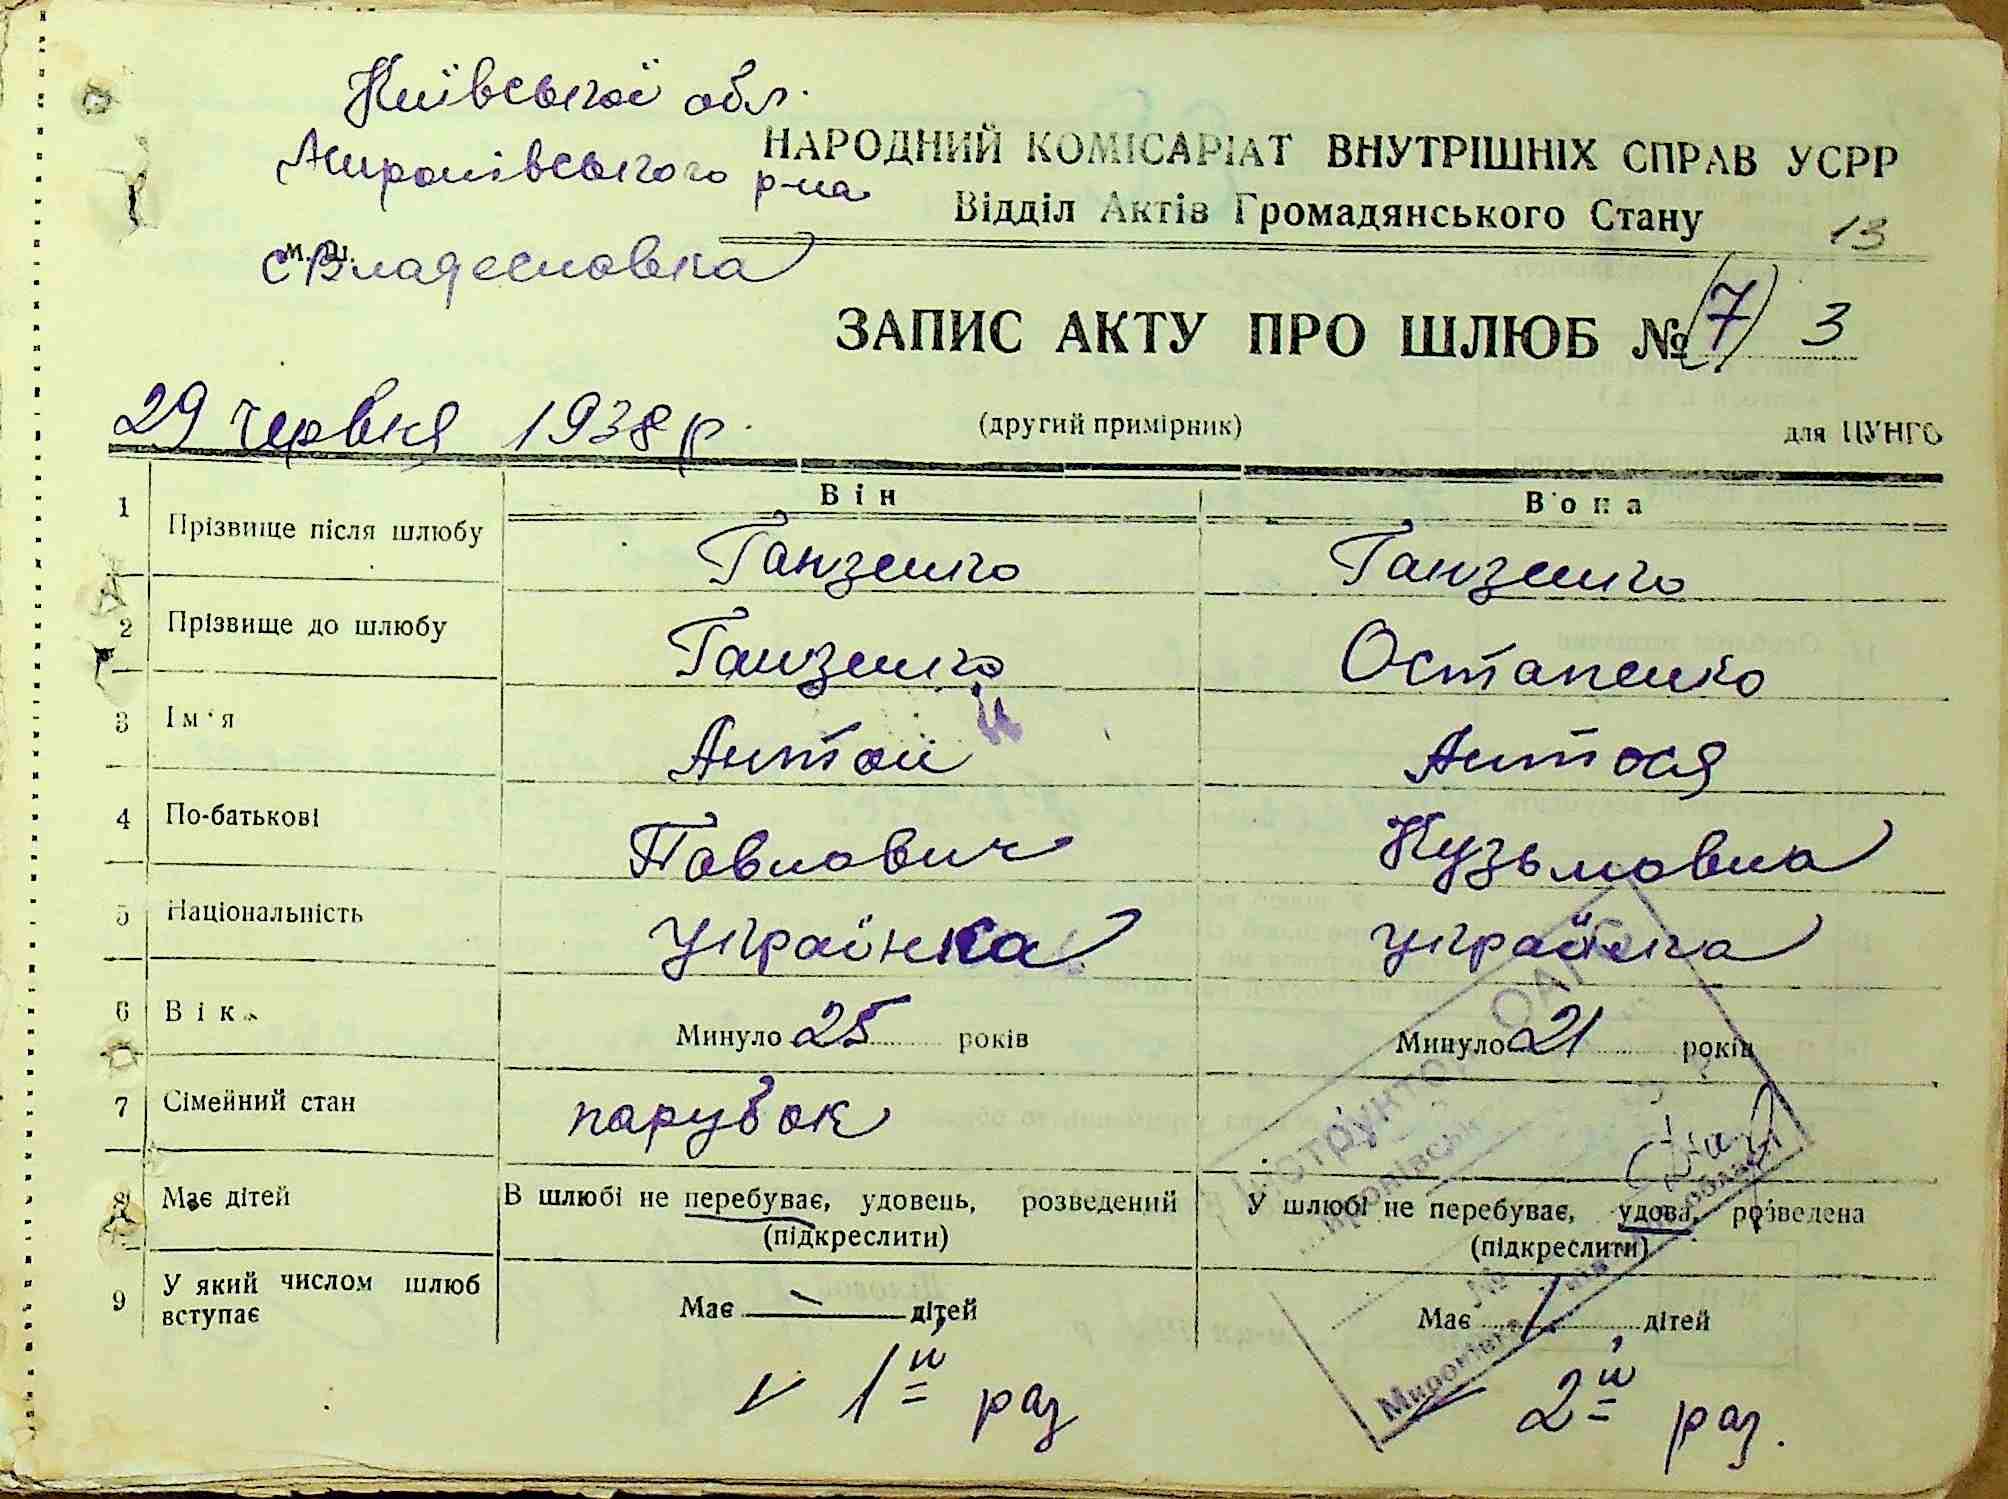 Київської обл.
Миронівського р-на
НАРОДНИЙ КОМІСАРІАТ ВНУТРІШНІХ СПРАВ УСРР
Відділ Актів Громадянського Стану
13
М. Ш.
с Владеславка
ЗАПИС АКТУ ПРО ШЛЮБ № (7) 3
29 червня 1938 р.
(другий примірник)
для ЦУНГО
Він
Вона
1 Прізвище після шлюбу Ганзенко Ганзенко
2 Прізвище до шлюбу Ганзенко Остапенко
3 Ім'я Антон Антося
4 По-батькові Павлович Кузьмовна
5 Національність українка українка
6 Вік Минуло 25 років Минуло 21 років
7 Сімейний стан парубок
8 Має дітей В шлюбі не перебуває, удовець, розведений У шлюбі не перебуває, удова, розведена
(підкреслити) (підкреслити)
9 У який числом шлюб вступає Має — дітей Має дітей
1й раз 2й раз.
Інструктор ОАГС
Миронівка